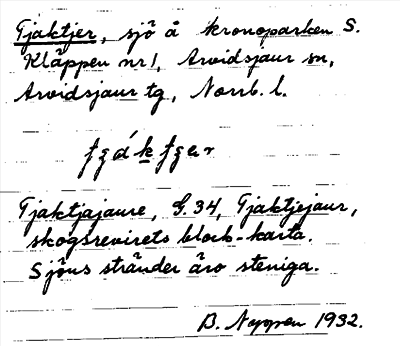 Tjaktjer, sjö å kronoparken S.
Kläppen nr 1, Arvidsjaur sn,
Arvidsjaur tg, Norrb. l.
Tjaktjajaure, G. 34, Tjaktjejaur,
skogsrevirets block-karta.
Sjöns stränder äro steniga.
B. Nyppen 1932.